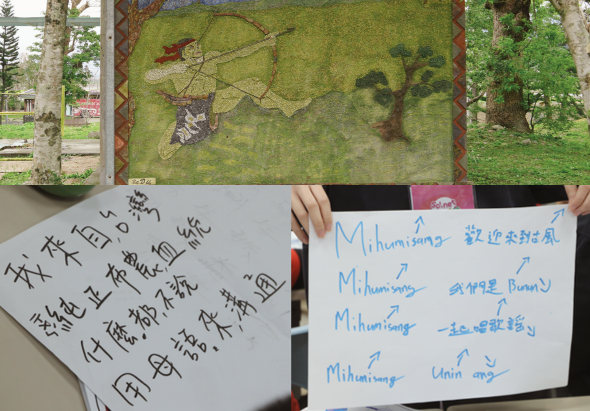 我來自台灣
純正布農血統
什麼都不說
用母語來溝通
Mihumisang 歡迎來到台風
Mihumisang 我們是 Bunun
Mihumisang 一起唱歌謠
Mihumisang Unin ang